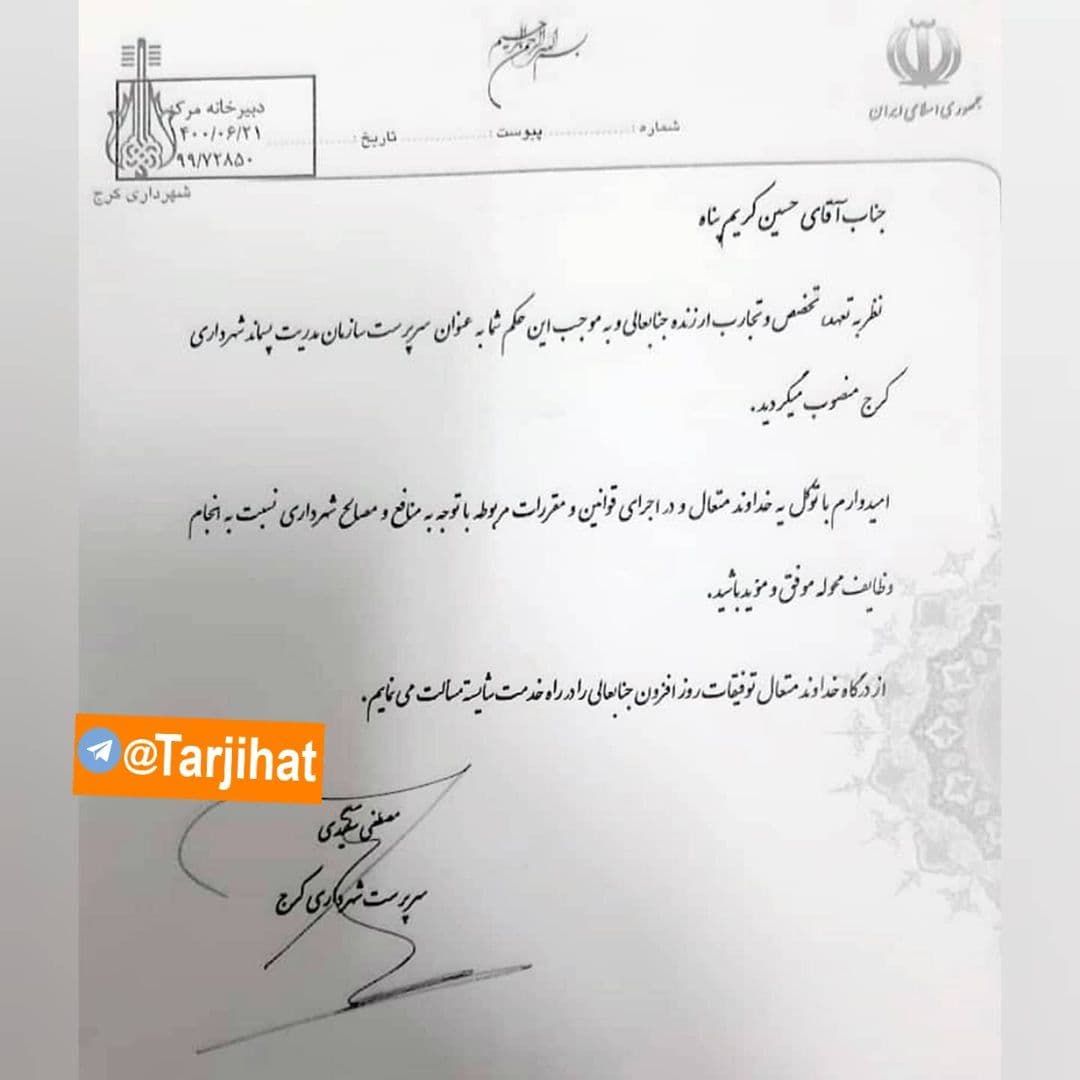 بسم الله الرحمن الرحیم
جمهوری اسلامی ایران
شماره : پیوست : تاریخ :
دبیرخانه مرکز
۱۴۰۰/۰۶/۲۱
۹۹/۷۲۸۵۰
شهرداری کرج
جناب آقای حسین کریم پناه
نظر به تعهد، تخصص و تجارب ارزنده جنابعالی و به موجب این حکم شما به عنوان سرپرست سازمان مدیریت پسماند شهرداری
کرج منصوب میگردید.
امیدوارم با توکل به خداوند متعال و در اجرای قوانین و مقررات مربوطه با توجه به منافع و مصالح شهرداری نسبت به انجام
وظایف محوله موفق و موید باشید.
از درگاه خداوند متعال توفیقات روز افزون جنابعالی را در راه خدمت شایسته مسالت می نمایم.
@Tarjihat
مصطفی
سرپرست شهرداری کرج